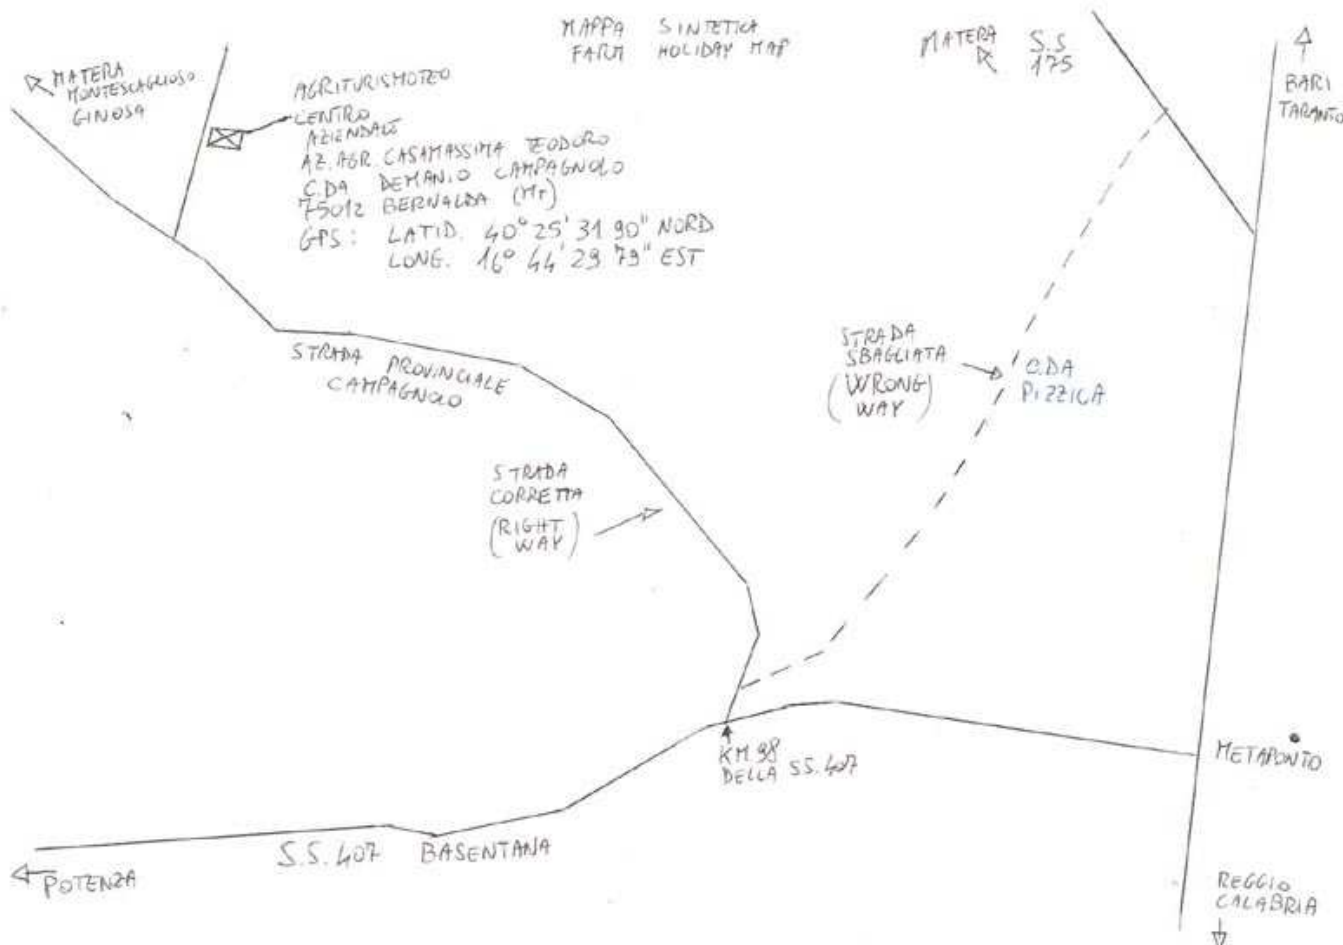 MAPPA SINTETICA
FARM HOLIDAY MAP
MATERA
MONTESCAGLIOSO
GINOSA
AGRITURISMOTEO
CENTRO
AZIENDALE
AZ. AGR. CASAMASSIMA TEODORO
C.DA DEMANIO CAMPAGNOLO
75012 BERNALDA (MT)
GPS: LATID. 40° 25' 31 90" NORD
LONG. 16° 44' 29 79" EST
MATERA S.S
175
BARI
TARANTO
STRADA PROVINCIALE
CAMPAGNOLO
STRADA
SBAGLIATA
(WRONG
WAY)
C.DA
PIZZICA
STRADA
CORRETTA
(RIGHT
WAY)
KM.98
DELLA SS.407
METAPONTO
S.S. 407 BASENTANA
POTENZA
REGGIO
CALABRIA